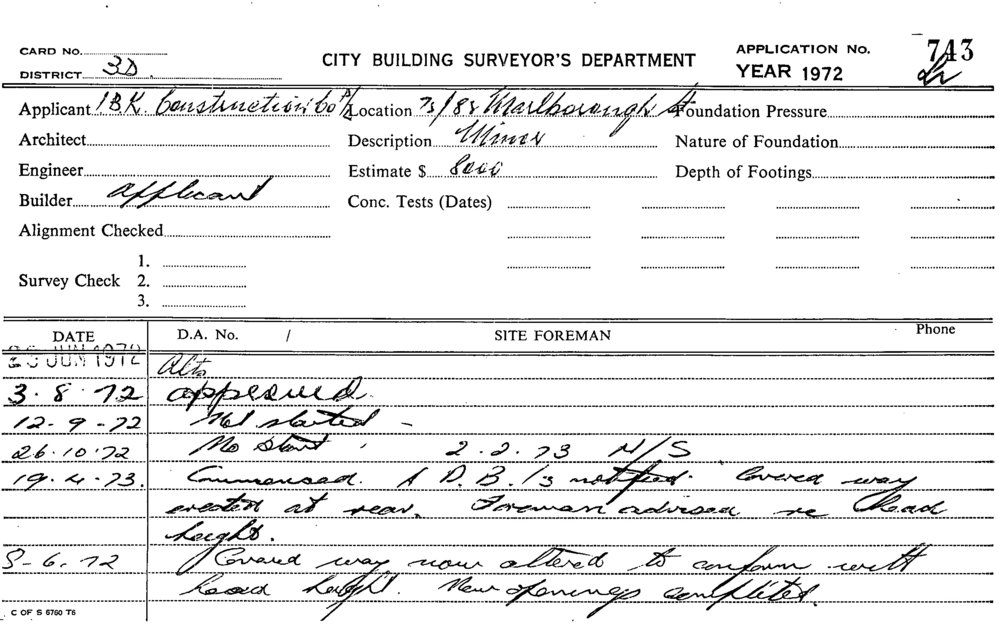 CARD No. CITY BUILDING SURVEYOR'S DEPARTMENT APPLICATION No. 743
DISTRICT 3D. YEAR 1972
Applicant I.B.K. Construction Co P/L Location 75/85 Marlborough St Foundation Pressure
Architect Description Minor Nature of Foundation
Engineer Estimate $ 8000 Depth of Footings
Builder applicant Conc. Tests (Dates)
Alignment Checked
1.
Survey Check 2.
3.
DATE D.A. No. / SITE FOREMAN Phone
JUN 1972 Alts
3.8.72 approved.
12-9-72 Not started -
26.10.72 No Start 2.2.73 N/S
19.4.73. Commenced. D.B.I's notified. Covered way
erected at rear. Foreman advised re head
height.
8-6.72 Covered way now altered to conform with
head height. New openings completed.
C OF S 6760 T6